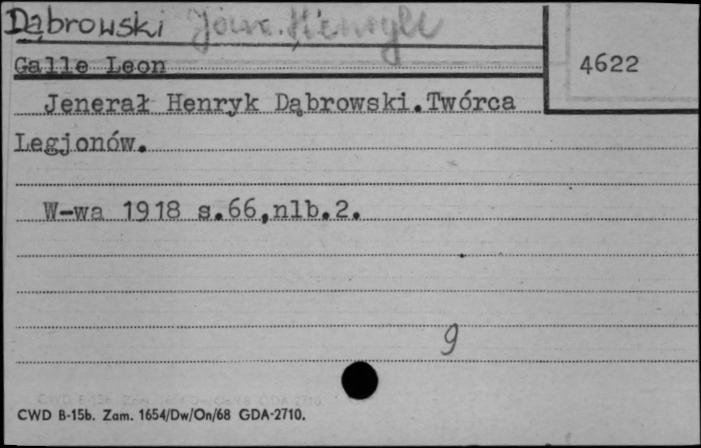 Dąbrowski Jan Henryk
4622
Galle Leon
Jenerał Henryk Dąbrowski.Twórca
Legjonów.
W-wa 1918 s.66,nlb.2.
9
CWD B-15b. Zam. 1654/Dw/On/68 GDA-2710.